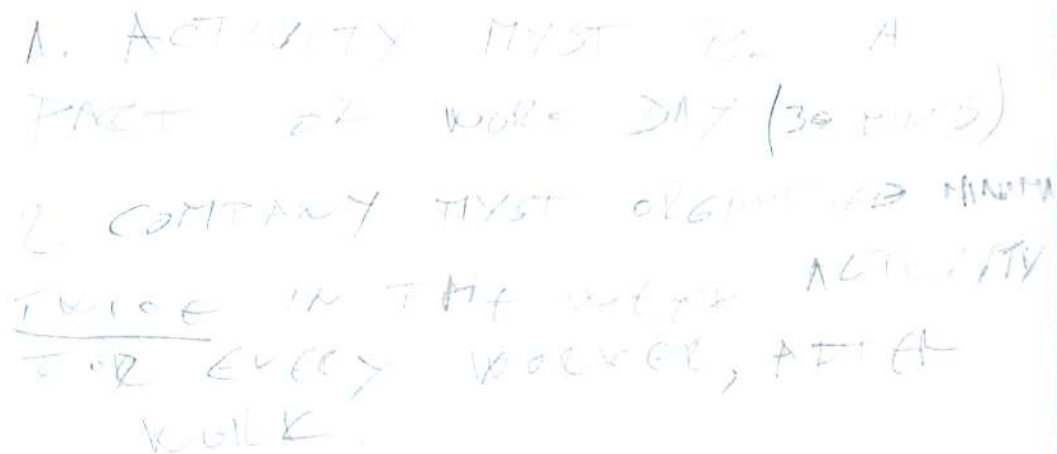 1. ACTIVITY MYST BE A
PART OF WORK DAY (30 MINS)
2 COMPANY MYST
TWICE IN THE WEEK ACTIVITY
FOR EVERY WORKER, AFTER
WORK.